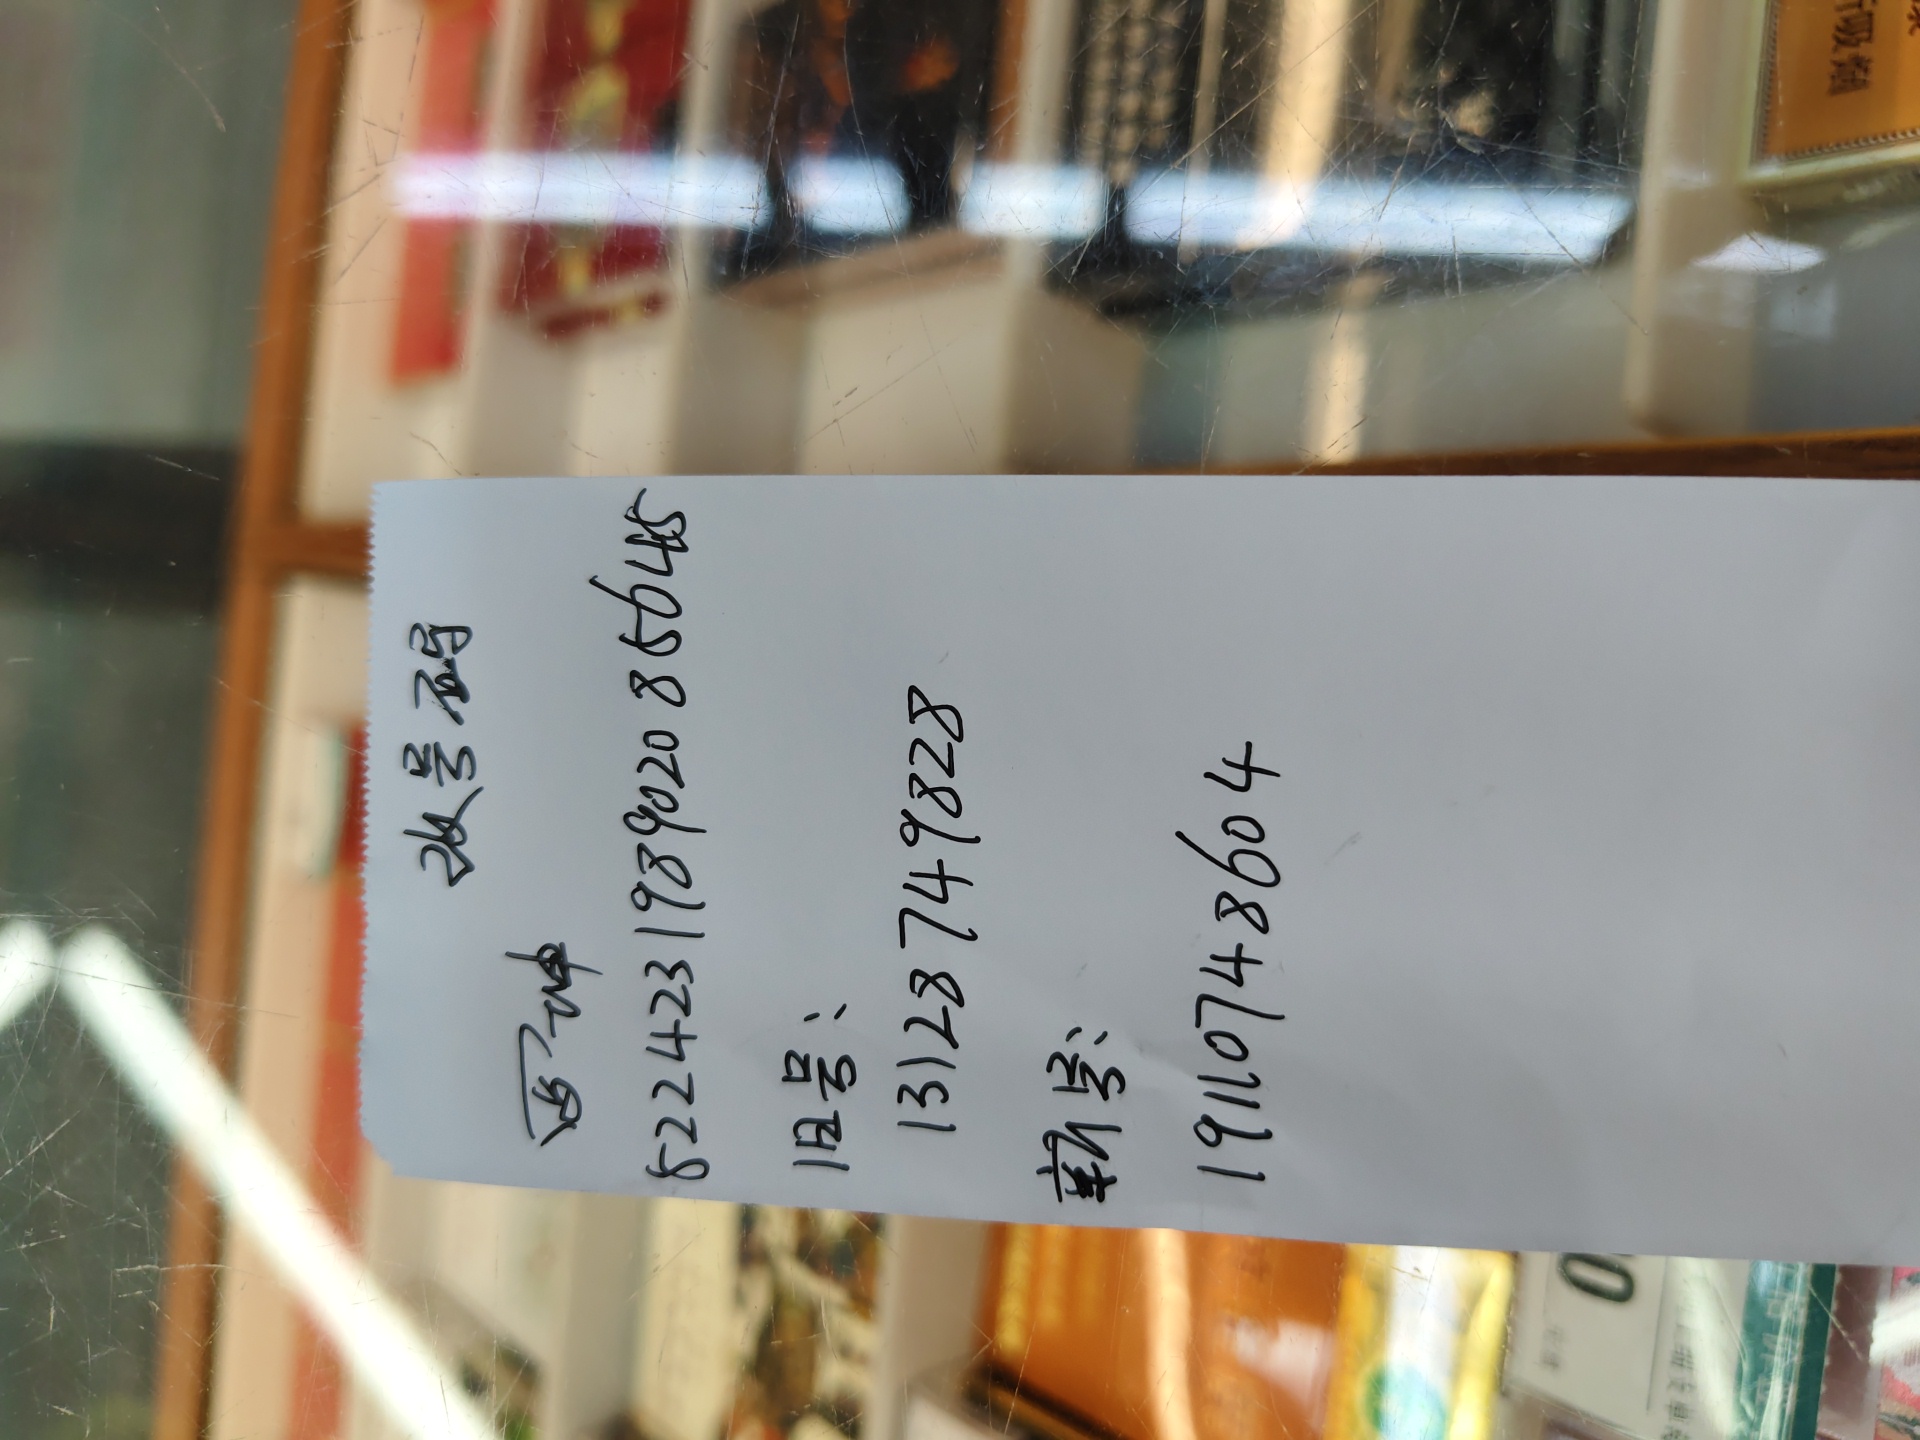 改号码
522423198902085645
旧号:
13128749828
新号:
19110748604